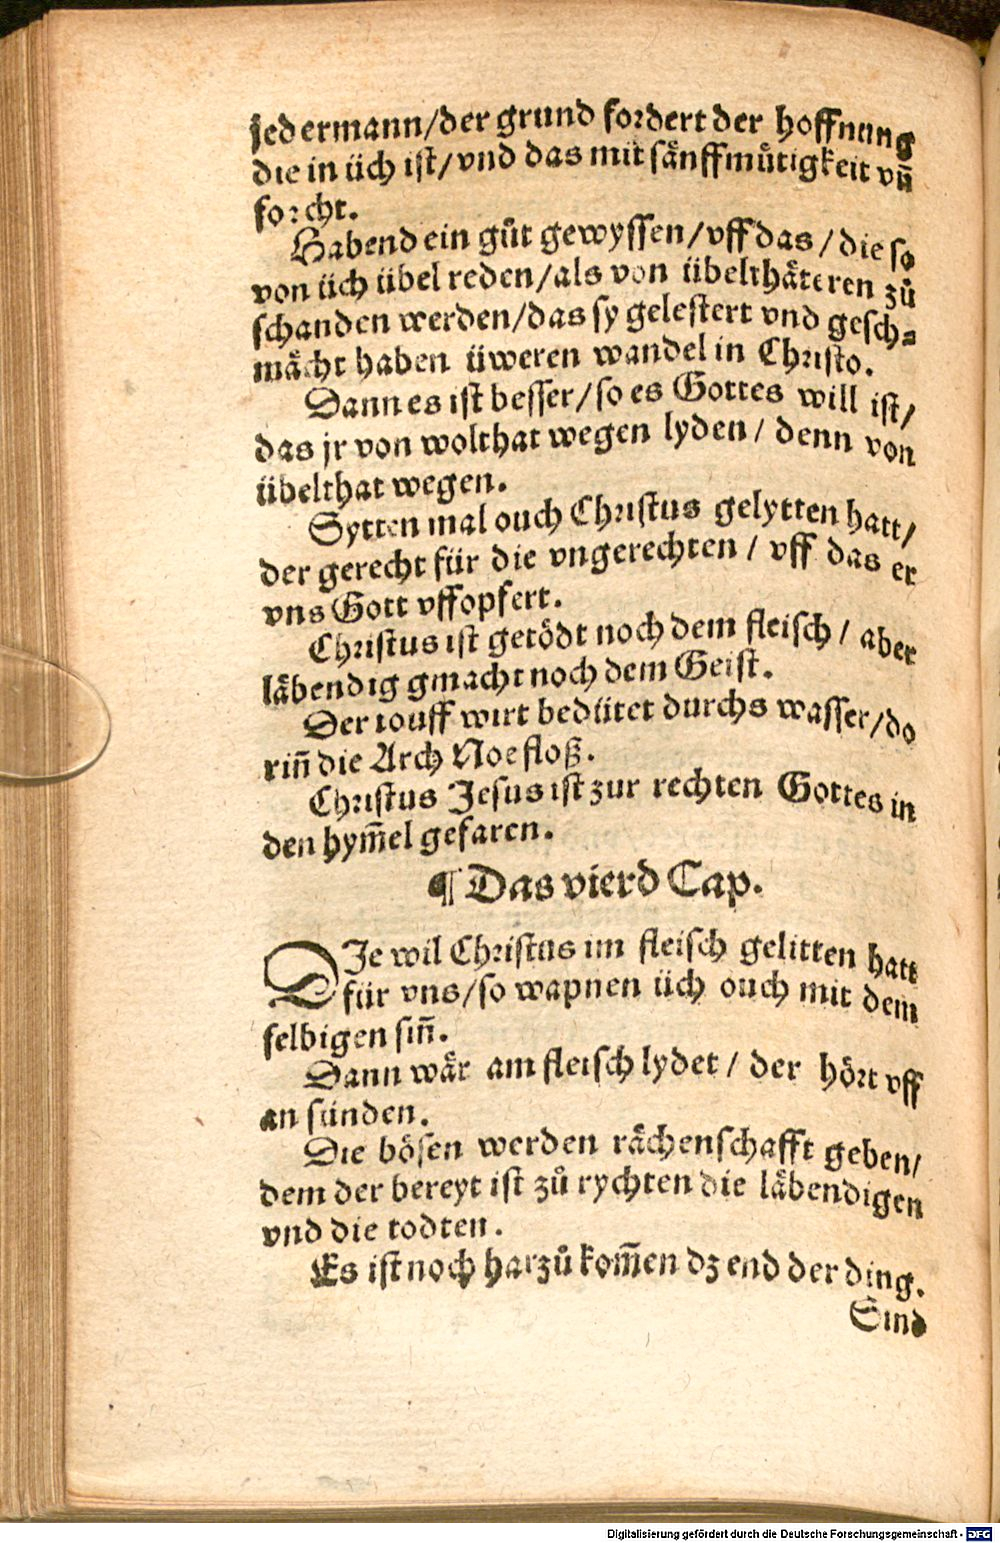 jedermann/der grund fordert der hoffnung
die in üch ist/vnd das mit sänffmuͤtigkeit vñ
forcht.
Habend ein guͤt gewyssen/vff das/die so
von üch übel reden/als von übelthäteren zuͦ
schanden werden/das sy gelestert vnd gesch⸗
mächt haben üweren wandel in Christo.
Dann es ist besser/so es Gottes will ist/
das jr von wolthat wegen lyden/ denn von
übelthat wegen.
Sytten mal ouch Christus gelytten hatt/
der gerecht für die vngerechten/ vff das er
vns Gott vffopfert.
Christus ist getödt noch dem fleisch/ aber
läbendig gmacht noch dem Geist.
Der touff wirt bedütet durchs wasser/do
riñ die Arch Noe floß.
Christus Jesus ist zur rechten Gottes in
den hym̃el gefaren.
¶ Das vierd Cap.
DJe wil Christus im fleisch gelitten hatt
für vns/so wapnen üch ouch mit dem
selbigen siñ.
Dann wär am fleisch lydet/ der hört vff
an sünden.
Die bösen werden rächenschafft geben/
dem der bereyt ist zuͦ rychten die läbendigen
vnd die todten.
Es ist noch harzuͦ kom̃en dz end der ding.
Sind
Digitalisierung gefördert durch die Deutsche Forschungsgemeinschaft - DFG